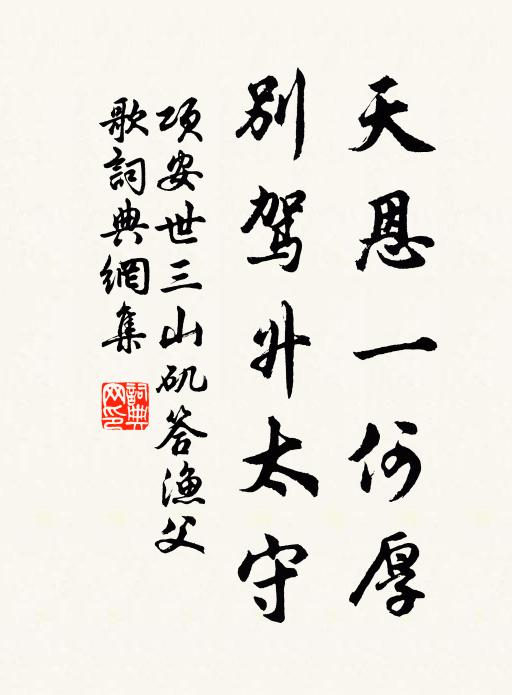 天恩一何厚
别驾升太守
项安世三山矶答渔父
歌詞典網集
詞典
网印